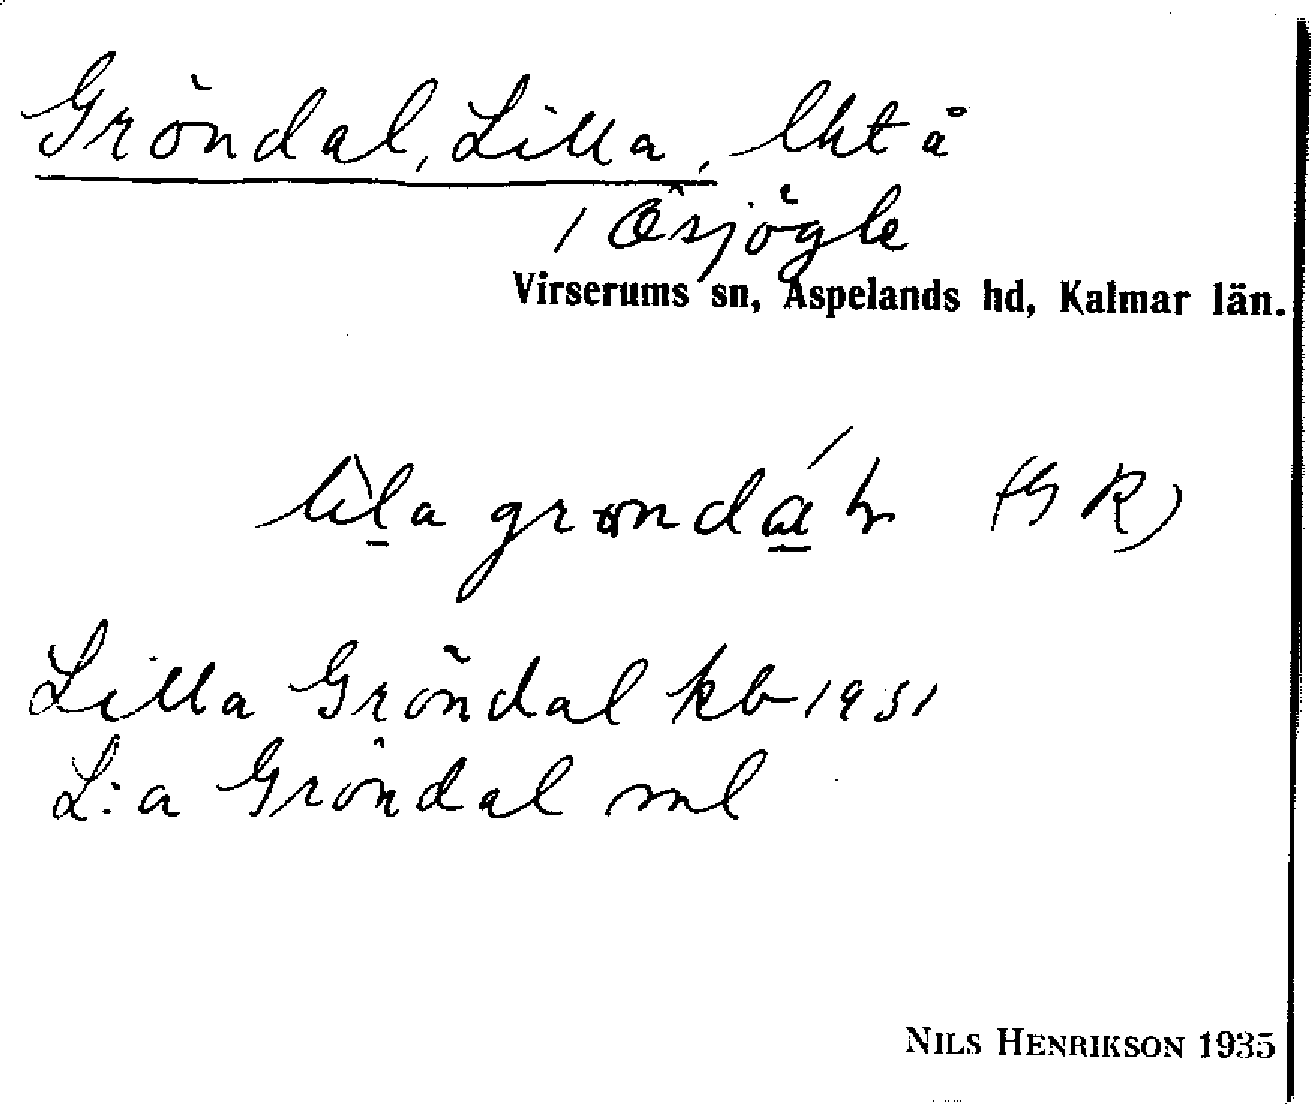 Gröndal, Lilla, lht å
1 Ösjögle
Virserums sn, Aspelands hd, Kalmar län.
lila grøndál
Lilla Gröndal kb 1931
L:a Gröndal ml
NILS HENRIKSON 1935